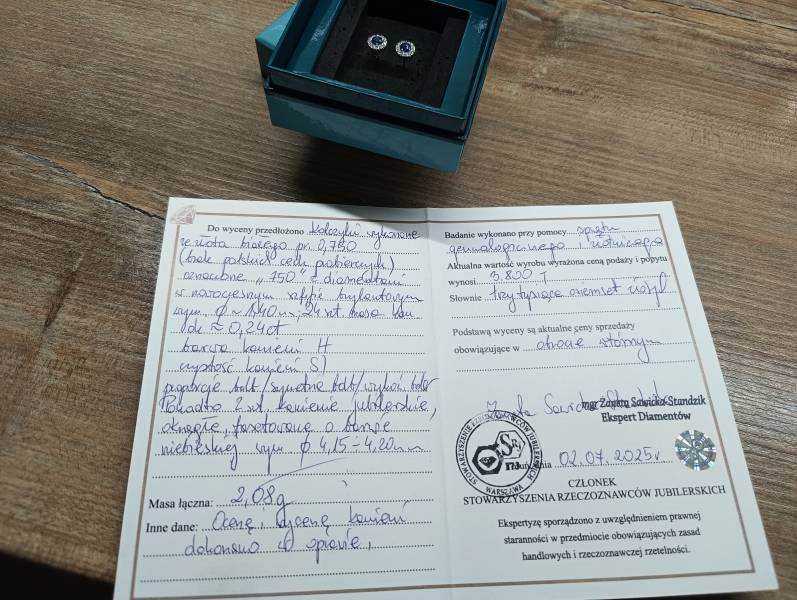 Do wyceny przedłożono kolczyki wykonane
ze złota białego pr. 0,750
(brak polskich cech probierczych)
oznaczone „750" z diamentami
w nowoczesnym szlifie brylantowym
wym. ϕ ~ 1,40 mm, 24 szt. masa
≈ 0,24 ct
barwa kamieni H
czystość kamieni SI
proporcje
Ponadto 2 szt. kamienie jubilerskie,
okrągłe, fasetowane o barwie
niebieskiej wym ϕ 4,15 ÷ 4,20 mm
Masa łączna: 2,08 g
Inne dane: Ocenę i wycenę kamieni
dokonano w oprawie.
Badanie wykonano przy pomocy sprzętu
gemmologicznego i
Aktualna wartość wyrobu wyrażona ceną podaży i popytu
wynosi 3.800
Słownie trzy tysiące osiemset
Podstawą wyceny są aktualne ceny sprzedaży
obowiązujące w obrocie wtórnym
mgr Żaneta Sawicka-Standzik
Ekspert Diamentów
STOWARZYSZENIE RZECZOZNAWCÓW JUBILERSKICH
WARSZAWA
dnia 02.07.2025 r
CZŁONEK
STOWARZYSZENIA RZECZOZNAWCÓW JUBILERSKICH
Ekspertyzę sporządzono z uwzględnieniem prawnej
staranności w przedmiocie obowiązujących zasad
handlowych i rzeczoznawczej rzetelności.